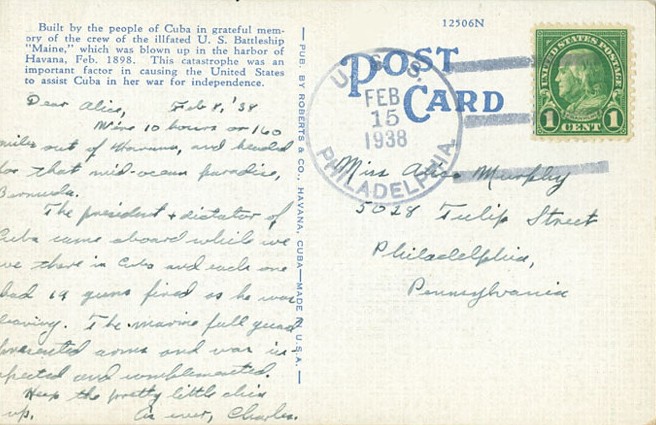 Built by the people of Cuba in grateful mem-
ory of the crew of the illfated U. S. Battleship
"Maine," which was blown up in the harbor of
Havana, Feb. 1898. This catastrophe was an
important factor in causing the United States
to assist Cuba in her war for independence.
12506N
POST
CARD
UNITED STATES POSTAGE
1 CENT 1
U. S. S.
FEB
15
1938
PHILADELPHIA
PUB. BY ROBERTS & CO., HAVANA, CUBA—MADE IN U.S.A.
Dear Alice, Feb 8, '38
We're 10 hours or 160
miles out of Havana, and headed
for that mid-ocean paradise,
Bermuda.
The president & dictator of
Cuba came aboard while we
were there in Cuba and each one
had 19 guns fired as he was
leaving. The marine full guard
presented arms and was in-
spected and complemented.
Keep the pretty little chin
up. As ever, Charles.
Miss Alice Murphy
5028 Tulip Street
Philadelphia,
Pennsylvania